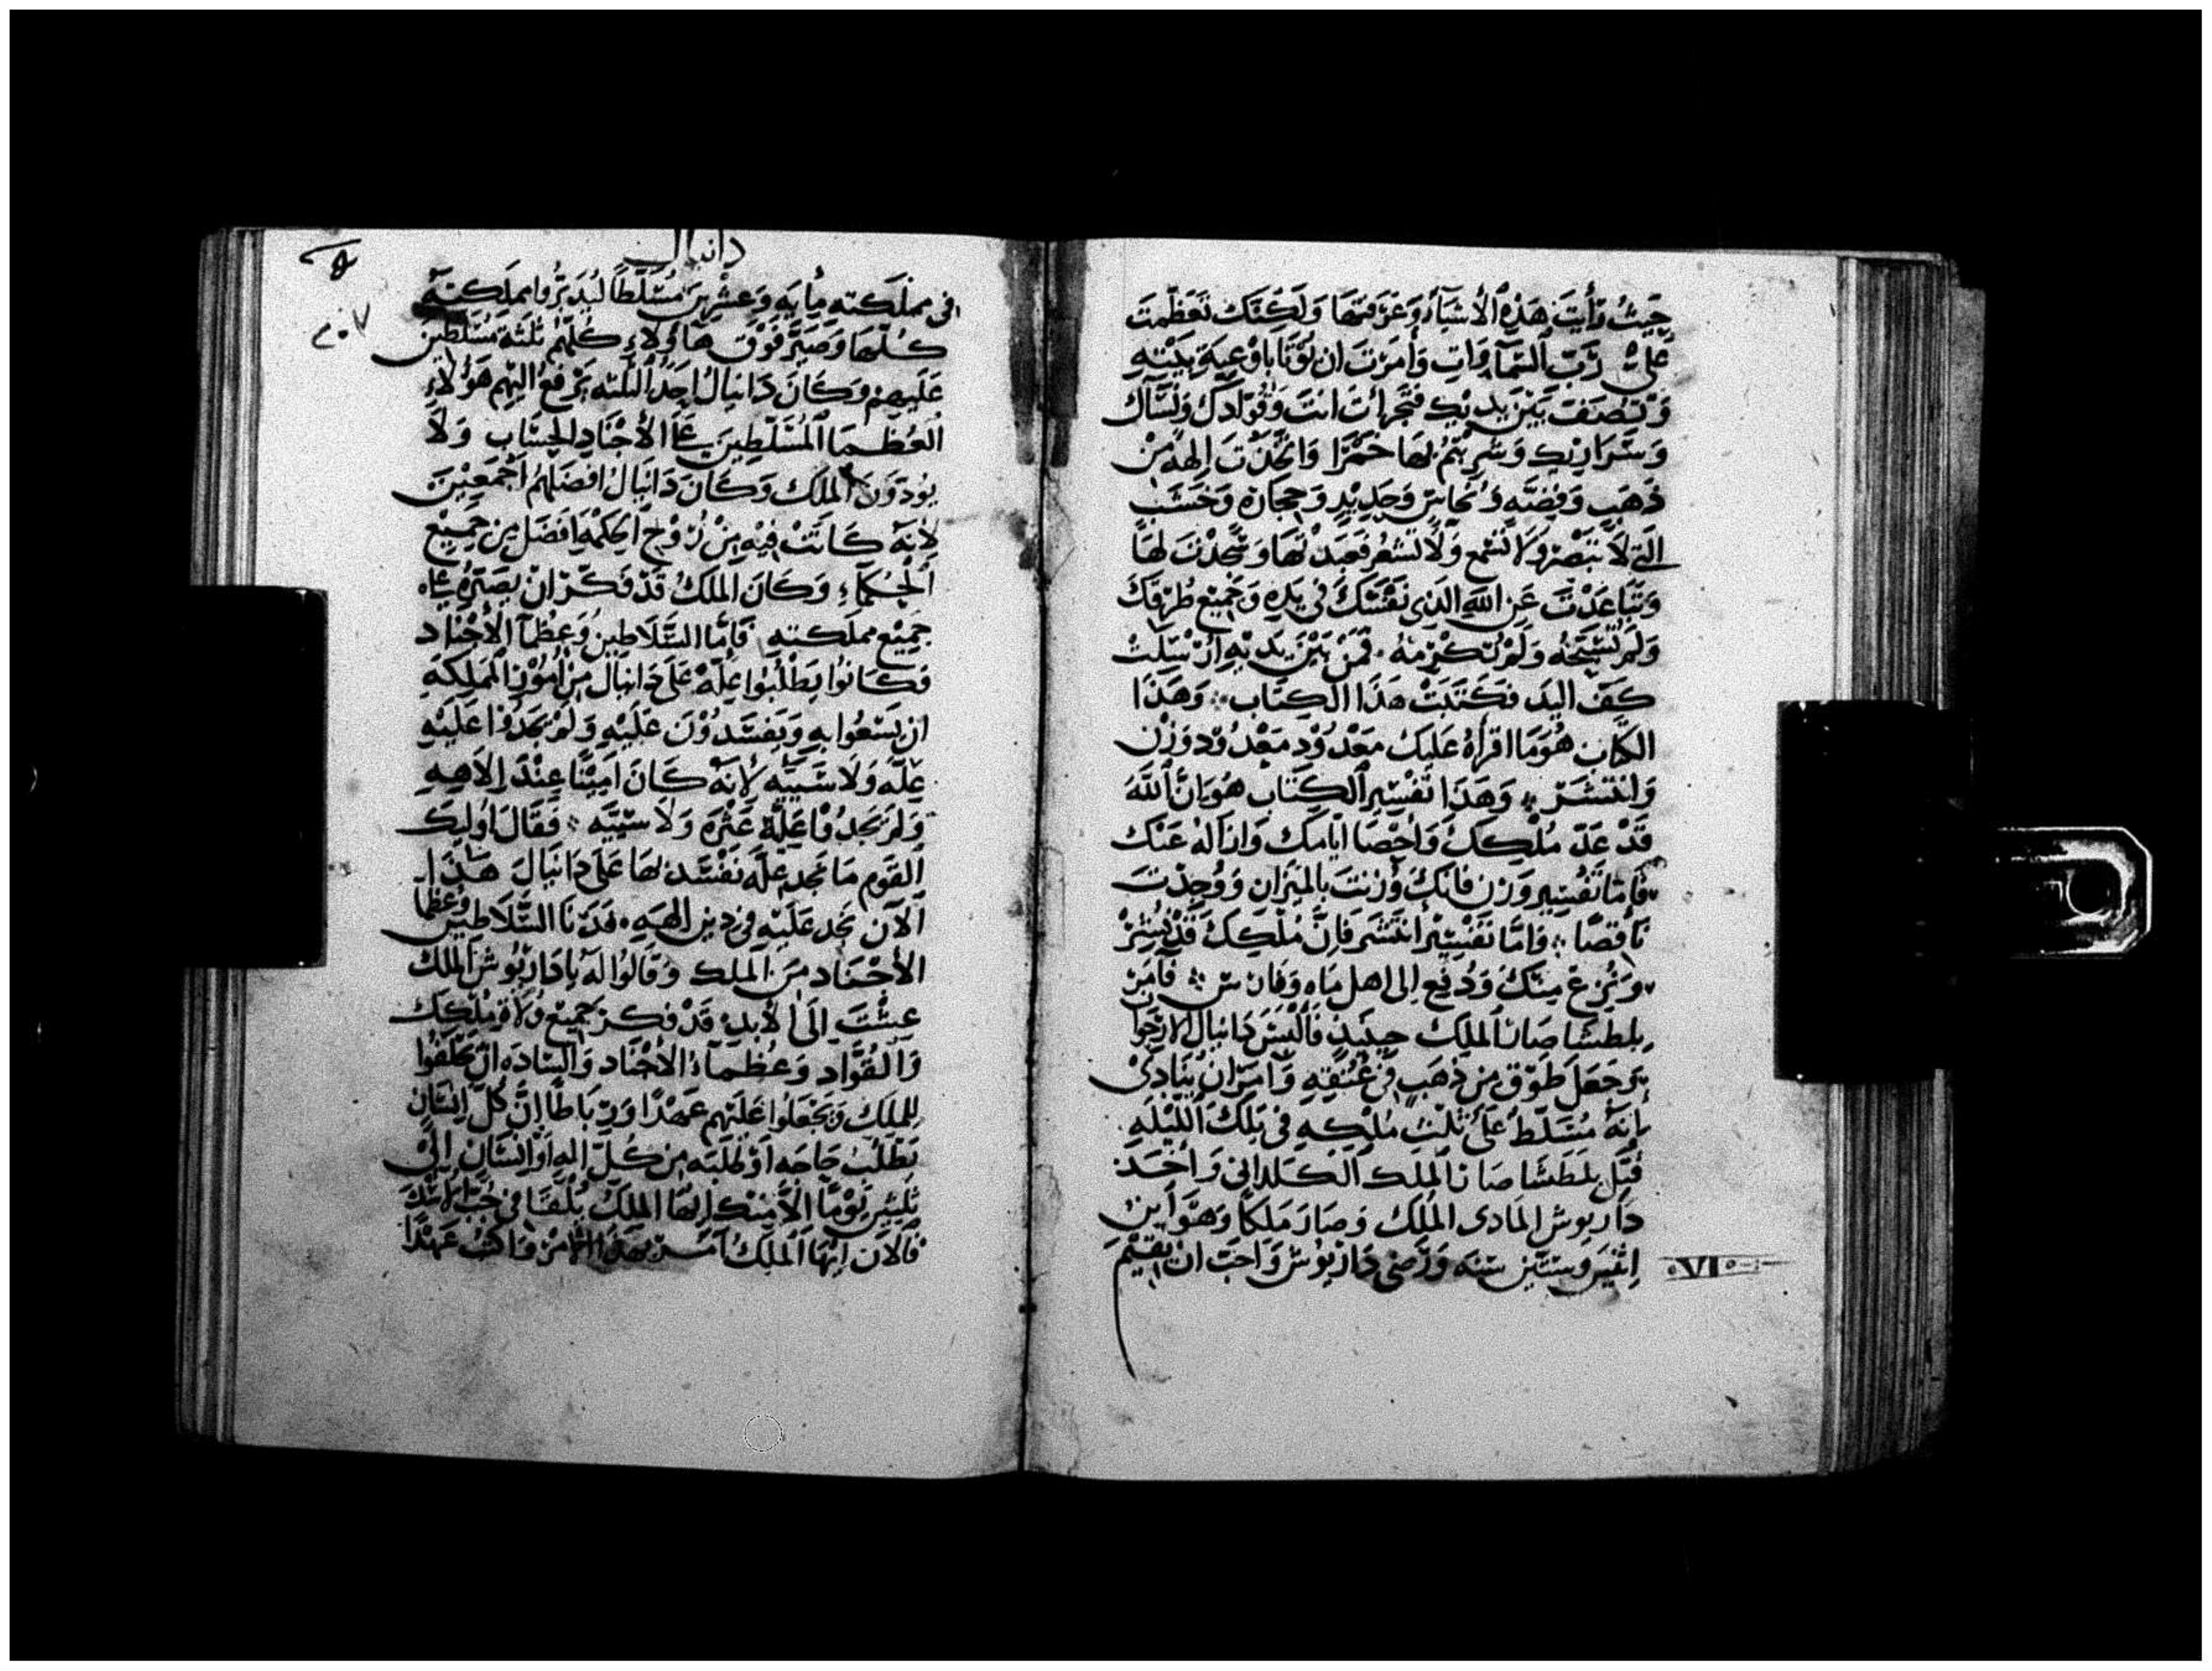 حَيثُ رَأَيتَ هَذِهِ الأشيَآءَ وَعَرَفتَهَا وَلَكِنَّكَ تَعَظَّمتَ
عَلَىْ رَبّ السَّمَآوَاتِ وَأمَرْتَ ان يُؤتَا بِاوْعِيَةِ بَيْتِهِ
بَيْنَ يَدَيْكَ فَتَجَرأتَ انتَ وَقُوّادَكَ وَنِسَآك
وَسَرَاريْكَ وَشَرِبْتُمْ بِهَا خَمْرًا وَاتَّخَذْتَ الِهَةً مِنْ
ذَهَبٍ وَفِضّه وَنُحَاسٍ وَحَدِيْدٍ وَحِجَارَه وَخَشَب
الّتِي لاَ تَبْصُرْ وَلاَ تَسْمَع وَلاَ تَشْعُر فَعَبَدْتَهَا وَسَجَدْتَ لَهَا
وَتَبَاعَدْتَ عَنِ اللهِ الذِى نَفْسَكَ فى يَدِهِ وَجَمِيْع طُرُقِكَ
وَلَم تُسَبِّحْهُ وَلَمْ تُكْرِمْهُ. فَمِنْ بَيْن يَدَيْهِ ارْسَلَتْ
كَفّ اليَد فَكَتَبَتْ هَذَا الكِتَاب ؞ وَهَذَا
الكِتَاب هُوَ مَا اقرَاهُ عَلَيكَ مَعْدُوْد مَعْدُوْد وَزْن
وَانْتَشَرَ ؞ وَهَذَا تَفْسِيْر الكِتَابِ هُوَ انَّ اللهَ
قَدْ عَدّ مُلْكِكَ وَاحْصَا ايَّامك وَازاله عَنْكَ
فَأمّا تَفْسِير وَزن فانّكَ وُزنتَ بالميْزان وَوُجِدْتَ
نَاقِصًا ؞ وَامّا تَفْسِيْر انْتَشَر فَاِنَّ مُلْكِكَ قَدْ نُشِرْ
وَنُزِعْ مِنْكَ وَدُفِعَ الى اهل مَاه وَفَارس ؞ فَامَرَ
بلطشاصار الملِك حِيْنَيذٍ فَالْبَسَ دَانيال الارْجوان
وَجَعَلَ طَوْق مِن ذَهَبٍ فى عُنُقِهِ وَأَمَرَ انْ يُنَادَىْ
اِنَّهُ مُسَلّطْ عَلَى ثُلْثِ مُلْكِهِ فى تِلكَ اللّيْلَهِ
قُتِلَ بلطَشَاصَار المَلِك الكَلدَانى وَاخَذَ
دَاريوش المَادى المُلك وَصَارَ مَلَكاً وَهوَ ابن
اثْنَيْن وسِتِّين سَنَه وَرَضى دَارْيُوش وَاحَبّ انْ يُقِيْم
VI
دانيال
٢٠٧
فى مملَكته مِايه وَعِشْرِينَ مُسَلَّطًا ليُدَبّرُوا مملَكتِهِ
كُلّهَا وَصَيَّرَ فَوْق هَاوُلاءِ كُلّهُمْ ثلثة مُسَلّطين
عَلَيهِمْ وَكَانَ دَانيَالُ احَدُ الثلثه يَرْفَعُ اليْهِم هَؤُلاءِ
العُظَمَا المُسَلّطِينَ عَلَى الأجْنَادِ الحِسَابِ وَلاَ
يُوذوْنَ المَلِكَ وَكَانَ دَانيَالُ افضَلهُمُ اجْمَعِيْنَ
لأنَّهُ كَانَتْ فِيْهِ مِنْ رُوْحِ الحِكْمَةِ افضَل مِنْ جَمِيْع
الحُكمَآءِ وَكَانَ المَلِكُ قَدْ فَكّرَ انْ يُصَيّرَهُ عَلَى
جَمِيْع مملكتهِ فَامَّا السَّلاطِين وَعُظمآ الأجْنَاد
فَكَانُوا يَطْلُبُوا عِلّةْ عَلَى دَانيال مِنْ امُوْرِ المملِكَة
ان يَسْعُوا بِهِ وَيَفسّدُوْنَ عَلَيْهِ وَلَمْ يَجَدُوْا عَلَيْهِ
عِلّه وَلاَ سَيّيه لأنّهُ كَانَ امِيْنًا عِنْدَ الاَهِهِ
وَلَم يَجَدُوْا عِلّة عَثْرَه وَلاَ سَيّيه ؞ فَقَالَ اوُليكَ
القَوم مَا نجد عِلّه نَفسّد بِهَا عَلَى دَانيَالَ هَذَا
الآن نجد عَلَيْهِ فى دِين الهِهِ. فَدَنَا السَّلاطِين وَعُظما
الأجْنَاد مِنَ المَلِك وَقَالُوا لَهُ يَا دَاريُوش المَلك
عِشْتَ الَى الأبَدِ قَدْ فكرَ جَمِيْع وُلاَة مُلْكك
وَالقُوَّاد وَعُظمآءُ الأجْنَاد وَالسّادَه انْ يَحْلفُوا
للملِك وَيَجْعَلُوا عَلَيْهم عَهْدًا وَرِبَاطًا انّ كُلّ انسَان
يَطْلُبْ حَاجَه اوْ طَلِبَه مِن كُلّ الهٍ اوْ انسَان الَى
ثَلثِين يَوْمًا الاّ مِنْكَ ايُّهَا المَلِك يُلْقَا فى جُبّ الأُسْد
فَالآن ايُّهَا المَلكُ امُر بهَذَا الأمْر وَاكتُب عَهْدًا